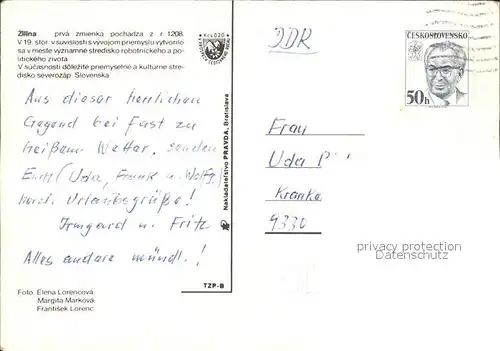 Žilina prvá zmienka pochádza z r 1208.
V 19. stor. v súvislosti s vývojom priemyslu vytvorilo
sa v meste významné stredisko robotníckeho a po-
litického života
V súčasnosti dôležité priemyselné a kultúrne stre-
disko severozáp. Slovenska
Kčs 0,20
Aus dieser herrlichen
Gegend bei fast zu
heißem Wetter, senden
Euch (Uda, Frank u. Wolfg.)
herzl. Urlaubsgrüße!
Irmgard u. Fritz
Alles andere mündl.!
Foto: Elena Lorencová
Margita Marková
František Lorenc
Nakladateľstvo PRAVDA, Bratislava
TZP-B
DDR
ČESKOSLOVENSKO
50h
Frau
Uda P
9330
privacy protection
watermark